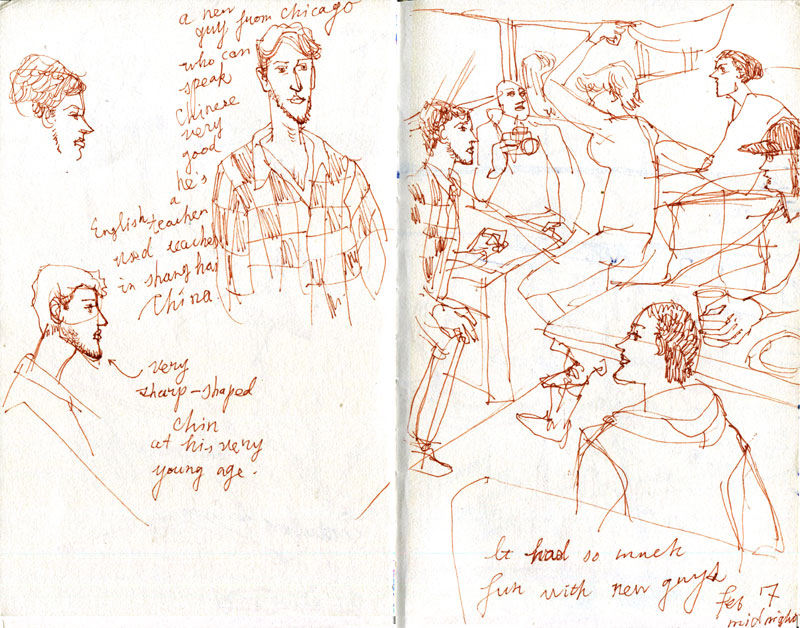 a new
guy from Chicago
who can
speak
Chinese
very
good
he's
a
English teacher
used teaches
in shanghai
China.
very
sharp-shaped
chin
at his very
young age.
had so much
fun with new guys
Feb 17
midnight